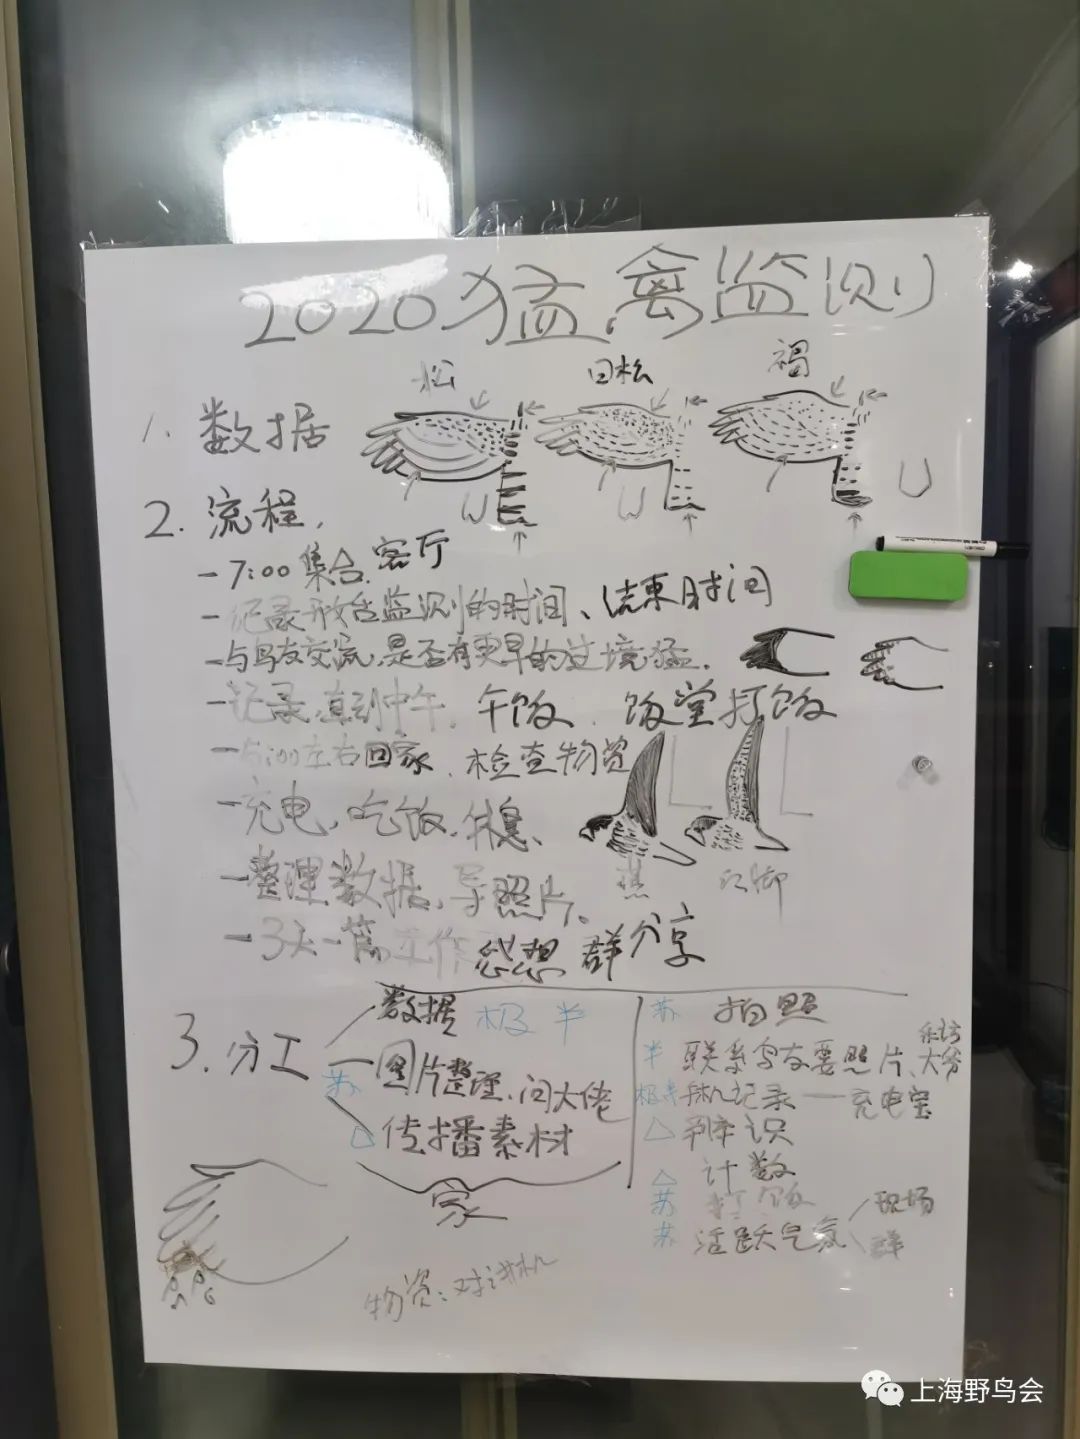 2020猛禽监测
松 日松 褐
1. 数据
2. 流程,
-7:00集合.客厅
-记录开始监测的时间、结束时间
-与鸟友交流,是否有更早的过境猛.
-记录,直到中午,午饭.饭堂打饭
:00左右回家、检查物资
-充电,吃饭,休息、
-整理数据,导照片。
-3天一篇工作感想 群分享
燕 红脚
3. 分工
数据 极 半
苏 图片整理、问大佬
△ 传播素材
家
苏 拍照
半 联系鸟友要照片、大爷
手机记录——充电宝
△ 识
△ 计数
苏 打饭
苏 活跃气氛 现场
群
物资:对讲机
上海野鸟会